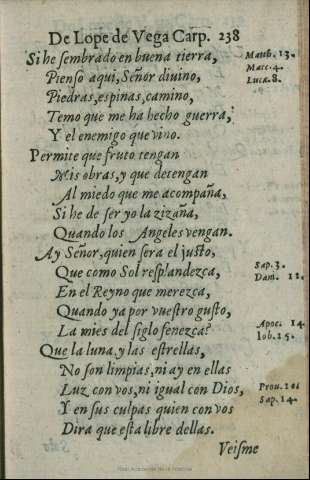 De Lope de Vega Carp. 238
Si he sembrado en buena tierra, Matth. 13.
Pienso aqui, Señor divino, Marc. 4.
Piedras, espinas, camino, Luca. 8.
Temo que me ha hecho guerra,
Y el enemigo que vino.
Permite que fruto tengan
Mis obras, y que detengan
Al miedo que me acompaña,
Si he de ser yo la zizaña,
Quando los Angeles vengan.
Ay Señor, quien sera el justo,
Que como Sol resplandezca, Sap. 3.
En el Reyno que merezca, Dani. 12.
Quando ya por vuestro gusto,
La mies del siglo fenezca? Apoc. 14.
Que la luna, y las estrellas, Iob. 25.
No son limpias, ni ay en ellas
Luz con vos, ni igual con Dios, Prou. 20.
Y en sus culpas quien con vos Sap. 14.
Dira que esta libre dellas.
Veisme